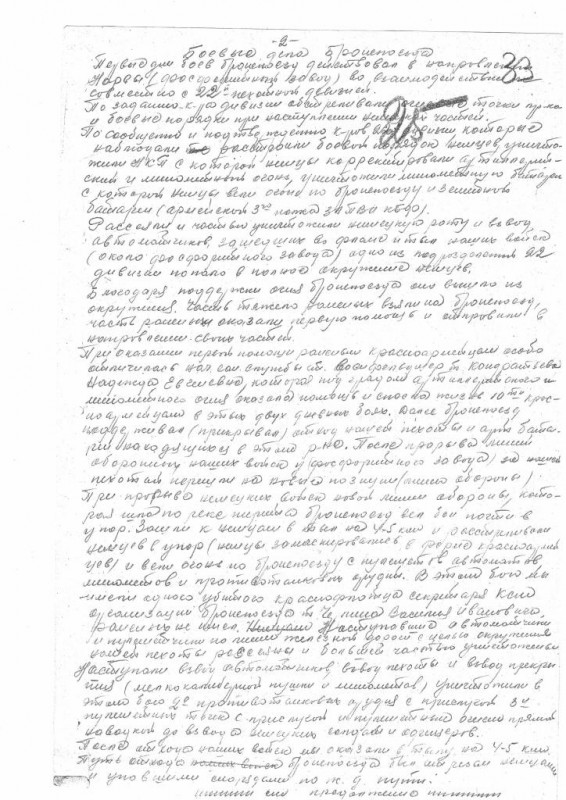 -2-
Боевые дела бронепоезда
Первые дни боев бронепоезд действовал в направлении
Нарвы (фосфоритный завод) во взаимодействии
совместно с 22й дивизией.
По заданию к-ра дивизии обстреливали огневые точки пр-ка
и боевые порядки при наступлении немецких частей.
По сообщению и подтверждению к-ров которые
наблюдали рассеивали боевой порядок немцев, уничто-
жили НКП с которой немцы корректировали артиллерий-
ский и минометный огонь, уничтожили минометную батарею
с которой немцы вели огонь по бронепоезду и зенитной
батареи (армейской 3го полка ЗАПВО КБФ).
Рассеяли и частью уничтожили немецкую роту и взвод
автоматчиков, зашедших во фланг и тыл наших войск
(около фосфоритного завода) одно из подразделений 22
дивизии попало в полное окружение немцев.
Благодаря поддержки огня бронепоезда оно вышло из
окружения. Часть тяжело раненых взяли на бронепоезд,
часть раненым оказали первую помощь и отправили в
направлении своих частей.
При оказании первой помощи раненым красноармейцам особо
отличилась нач. сан. службы Кондратьева
Надежда Евсеевна, которая под градом артиллерийского и
минометного огня оказала помощь и спасла жизнь 10ти крас-
ноармейцам в этих двух дневных боях. Далее бронепоезд
поддерживал (прикрывал) отход нашей пехоты и арт. бата-
реи находящихся в этом р-не. После прорыва линии
обороны наших войск (у фосфоритного завода) наша
пехота перешла на новые позиции (линия обороны).
При прорыве немецких войск новой линии обороны, кото-
рая шла по реке бронепоезд вел бой почти в
упор. Зашли к немцам в тыл на 4-5 км и расстреливали
немцев в упор (немцы замаскировались в форме красноармей-
цев) и вели огонь по бронепоезду с пулеметов, автоматов,
минометов и противотанковых орудий. В этом бою мы
имели одного убитого краснофлотца секретаря КСМ
организаций бронепоезда т. Василья Ивановича,
раненых не имели. Наступавшие автоматчики
и пулеметчики по линии железной дороги с целью окружения
нашей пехоты рассеяны и большей частью уничтожены.
Наступали взвод автоматчиков, взвод пехоты и взвод прикры-
тия (мелкокалиберной пушки и минометов), уничтожили в
этом бою 2а противотанковых орудия с прислугой 3и
пулеметных точки с прислугой и пулеметным огнем прямой
наводкой до взвода немецких солдат и офицеров.
После отхода наших войск мы оказали в тылу на 4-5 клм.
Путь отхода бронепоезда был отрезан немцами
и упавшими снарядами по ж. д. пути.